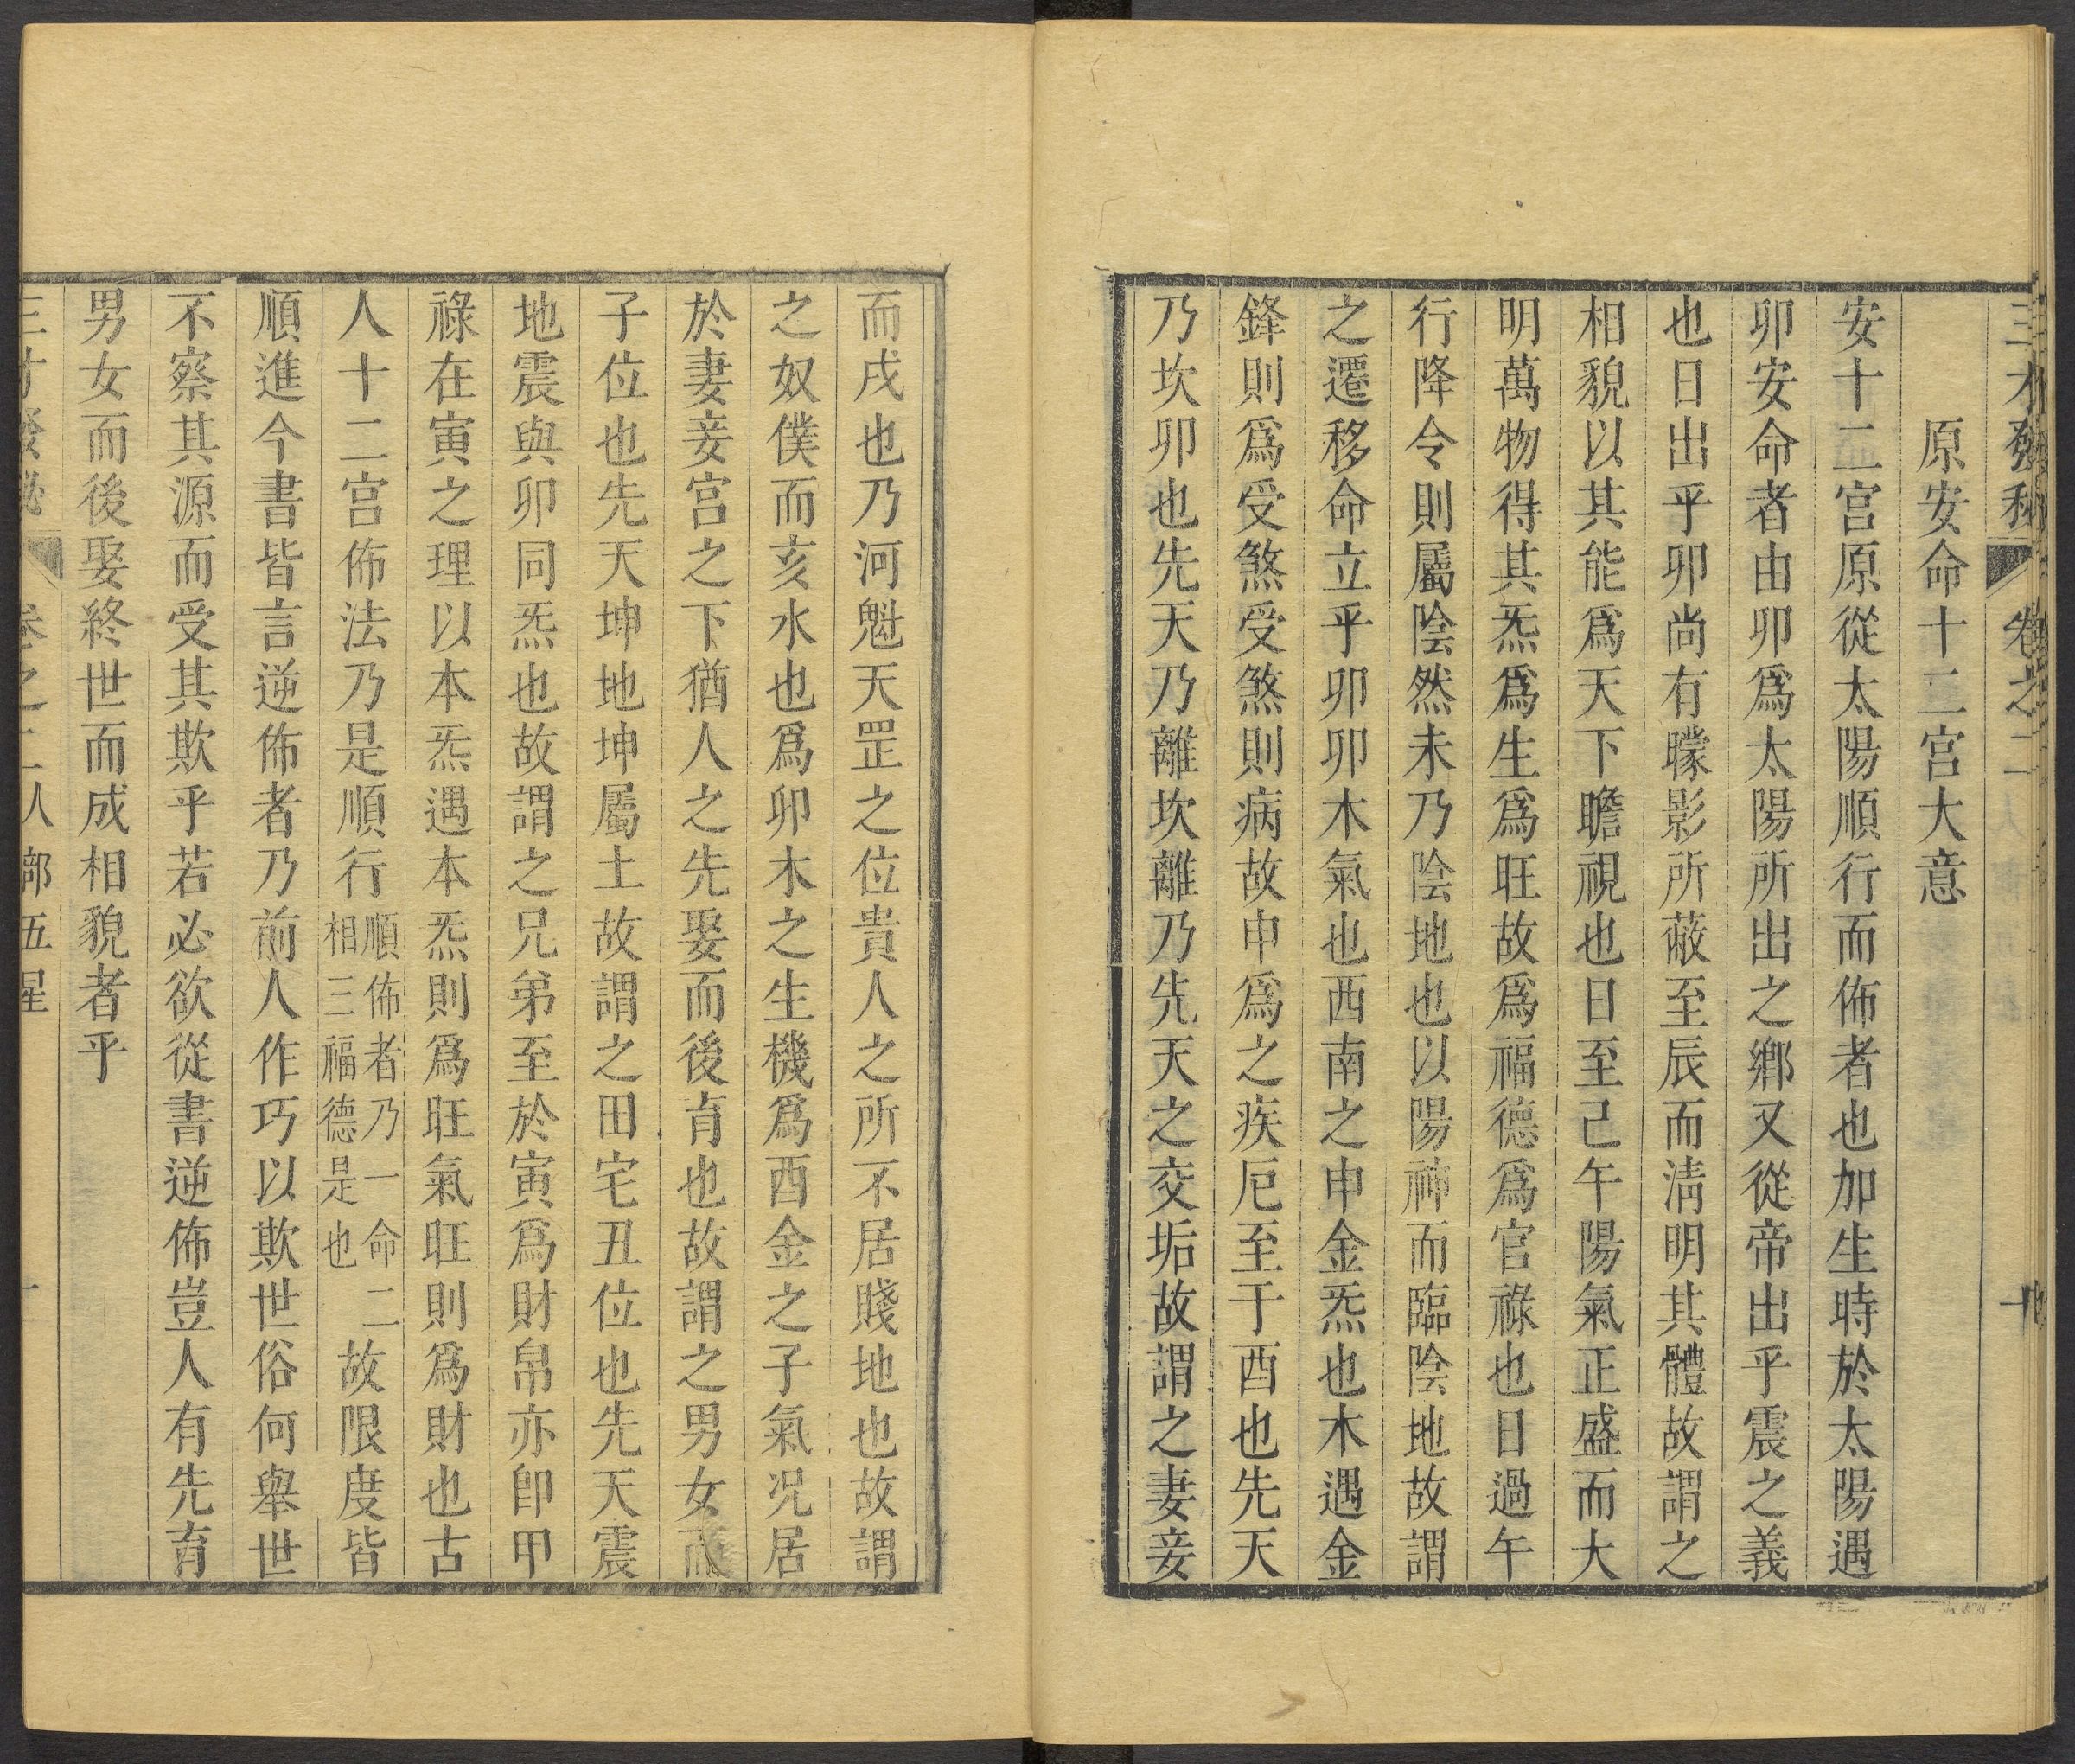 三才發秘 卷之二
原安命十二宮大意
安十二宮原從太陽順行而佈者也加生時於太陽遇
卯安命者由卯爲太陽所出之鄉又從帝出乎震之義
也日出乎卯尚有矇影所蔽至辰而淸明其體故謂之
相貌以其能爲天下瞻視也日至己午陽氣正盛而大
明萬物得其炁爲生爲旺故爲福德爲官祿也日過午
行降令則屬陰然未乃陰地也以陽神而臨陰地故謂
之遷移命立乎卯卯木氣也西南之申金炁也木遇金
鋒則爲受煞受煞則病故申爲之疾厄至于酉也先天
乃坎卯也先天乃離坎離乃先天之交垢故謂之妻妾
而戌也乃河魁天罡之位貴人之所不居賤地也故謂
之奴僕而亥水也爲卯木之生機爲酉金之子氣况居
於妻妾宮之下猶人之先娶而後育也故謂之男女而
子位也先天坤地坤屬土故謂之田宅丑位也先天震
地震與卯同炁也故謂之兄弟至於寅爲財帛亦卽甲
祿在寅之理以本炁遇本炁則爲旺氣旺則爲財也古
人十二宮佈法乃是順行順佈者乃一命二相三福德是也故限度皆
順進今書皆言逆佈者乃前人作巧以欺世俗何舉世
不察其源而受其欺乎若必欲從書逆佈豈人有先育
男女而後娶終世而成相貌者乎
三才發秘 卷之二人部五星